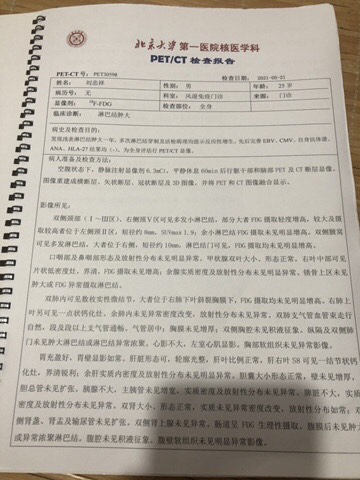 北京大学第一医院核医学科
PET/CT 检查报告
PET-CT 号: PET30598 检查日期: 2021-05-21
姓名 刘忠祥 性别: 男 年龄: 23 岁
病历号: 无 科室: 风湿免疫门诊 来源: 门诊
显像剂: ¹⁸F-FDG 检查部位: 全身
临床诊断: 淋巴结肿大
病史及检查目的:
发现浅表淋巴结肿大一年,多次淋巴结穿刺及活检病理均提示反应性增生。先后完善 EBV、CMV、自身抗体谱、
ANA、HLA-27 结果均(-)。为全身评估行 PET/CT 显像。
病人准备及检查方法:
空腹状态下,静脉注射显像剂 6.3mCi,平静休息 60min 后行躯干部和脑部 PET 及 CT 断层显像,
图像重建成横断层、矢状断层、冠状断层及 3D 图像,并将 PET 和 CT 图像融合显示。
影像所见:
双侧颈部(Ⅰ—Ⅲ区)、右侧颈Ⅴ区可见多发小淋巴结,部分大者 FDG 摄取轻度增高,较大及摄
取较高者位于左侧颈Ⅱ区,短径约 8mm,SUVmax1.9;余小淋巴结 FDG 摄取均未见明显增高。双侧腋窝
可见多发淋巴结,大者位于右侧,短径约 10mm,淋巴结门可见,FDG 摄取均未见明显增高。
口咽部及鼻咽部形态及放射性分布未见明显异常。甲状腺双叶大小、形态正常,右叶中部可见
片状低密度灶,界清,FDG 摄取未见增高;余腺实质密度及放射性分布未见明显异常。锁骨上区未见
肿大或 FDG 异常摄取淋巴结。
双肺内可见散在实性微结节,大者位于右肺下叶斜裂胸膜下,FDG 摄取均未见明显增高。右肺上
叶另可见一点状钙化灶。余肺内未见异常密度改变,放射性分布未见异常,双肺支气管血管束走行
自然,段及段以上支气管通畅,气管居中;胸膜未见增厚;双侧胸腔未见积液征象。纵隔及双侧肺
门未见肿大淋巴结或淋巴结异常浓聚。心影不大,左室心肌显影。胸部软组织未见异常影像。
胃充盈好,胃壁显影如常。肝脏形态可,轮廓光整,肝叶比例正常,肝右叶 S8 可见一结节状钙
化灶,界清锐利;余肝实质内密度及放射性分布未见明显异常。胆囊大小形态正常,壁未见增厚,
胆总管未见扩张。胰腺不大,主胰管未见增宽,实质密度及放射性分布未见异常。脾脏不大,实质
密度及放射性分布未见异常。双肾大小、形态正常,实质未见异常密度改变,放射性分布如常;双
侧肾盏、肾盂及输尿管未见扩张,双侧肾上腺未见异常。肠道呈 FDG 生理性摄取。腹膜后未见肿大
或异常浓聚淋巴结。腹腔未见积液征象。腹壁软组织未见明显异常影像。